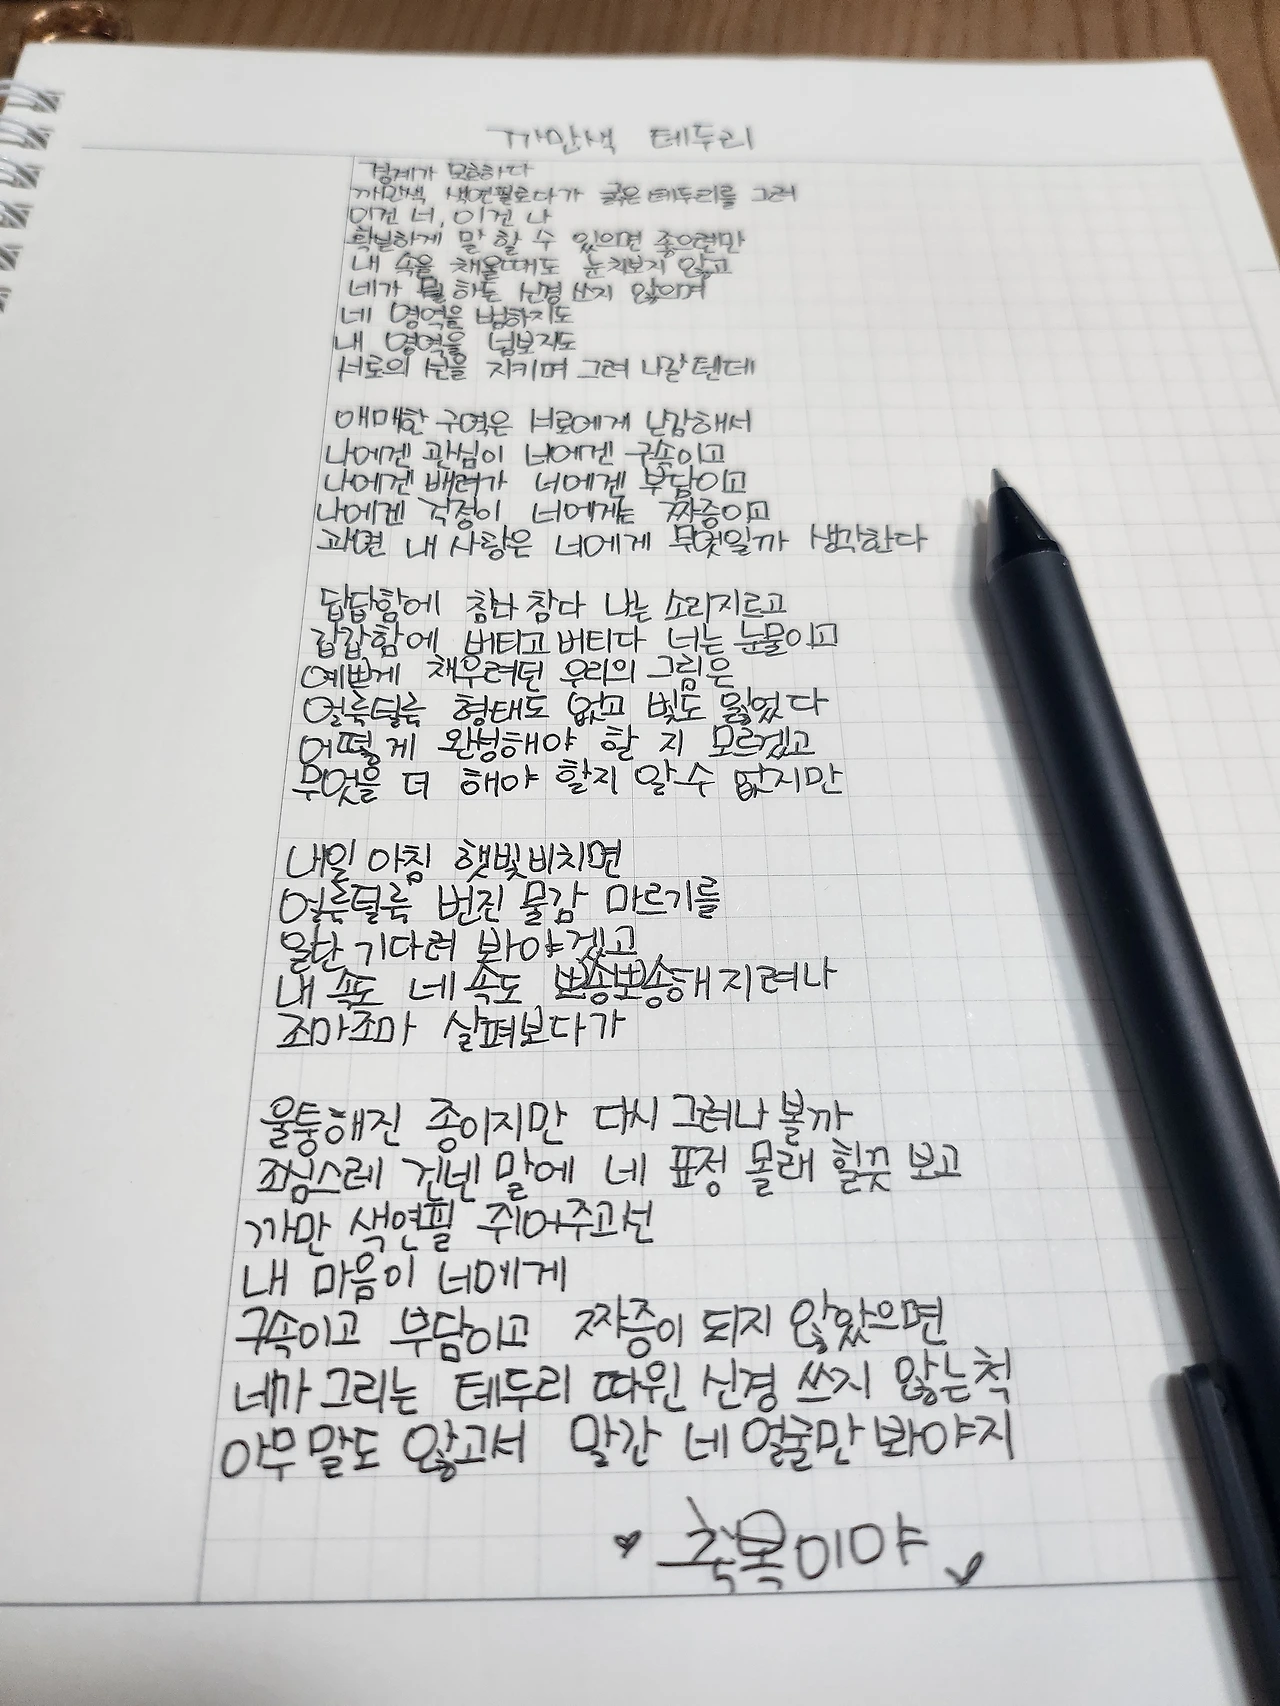 까만색 테두리
경계가 모호하다
까만색 색연필로다가 굵은 테두리를 그려
이건 너, 이건 나
확실하게 말 할 수 있으면 좋으련만
내 속을 채울때도 눈치보지 않고
네가 뭘 하든 신경 쓰지 않으며
네 영역을 범하지도
내 영역을 넘보지도
서로의 선을 지키며 그려 나갈텐데
애매한 구역은 서로에게 난감해서
나에겐 관심이 너에겐 구속이고
나에겐 배려가 너에겐 부담이고
나에겐 걱정이 너에게는 짜증이고
과연 내 사랑은 너에게 무엇일까 생각한다
답답함에 참다 참다 나는 소리지르고
갑갑함에 버티고 버티다 너는 눈물이고
예쁘게 채우려던 우리의 그림은
얼룩덜룩 형태도 없고 빛도 잃었다
어떻게 완성해야 할 지 모르겠고
무엇을 더 해야 할지 알 수 없지만
내일 아침 햇빛 비치면
얼룩덜룩 번진 물감 마르기를
일단 기다려 봐야겠고
내 속도 네 속도 뽀송뽀송해 지려나
조마조마 살펴보다가
울퉁해진 종이지만 다시 그려나 볼까
조심스레 건넨 말에 네 표정 몰래 힐끗 보고
까만 색연필 쥐어주고선
내 마음이 너에게
구속이고 부담이고 짜증이 되지 않았으면
네가 그리는 테두리 따윈 신경 쓰지 않는척
아무 말도 않고서 말간 네 얼굴만 봐야지
♥ 축복이야 ♥